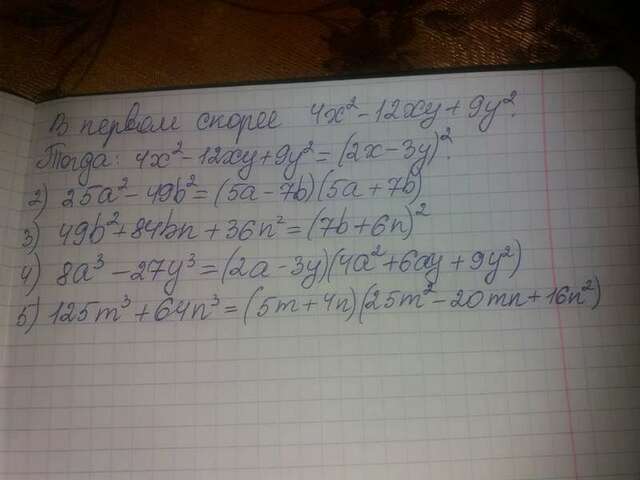 В первом скорее 4x² - 12xy + 9y².
Тогда: 4x² - 12xy + 9y² = (2x - 3y)².
2) 25a² - 49b² = (5a - 7b)(5a + 7b)
3) 49b² + 84bn + 36n² = (7b + 6n)²
4) 8a³ - 27y³ = (2a - 3y)(4a² + 6ay + 9y²)
5) 125m³ + 64n³ = (5m + 4n)(25m² - 20mn + 16n²)